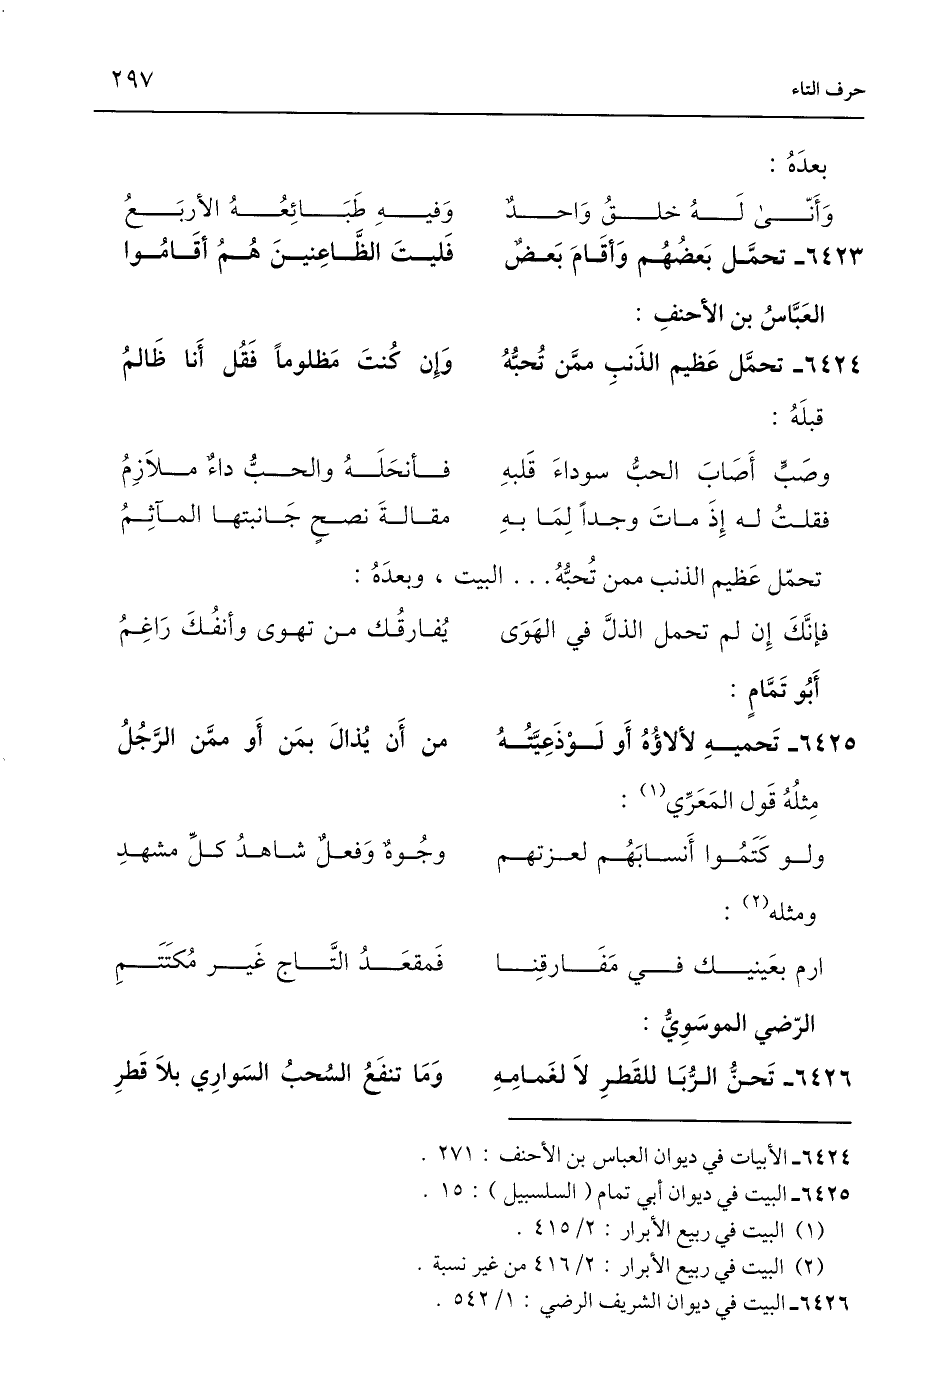 حرف التاء ٢٩٧
بعدَهُ :
وَأَنَّـــىٰ لَـــهُ خلـــقُ وَاحـــدٌ وَفيـــهِ طَبَـــائِعُـــهُ الأربَـــعُ
٦٤٢٣ـ تحمَّـل بَعضُهُـم وَأقَـامَ بَعـضٌ فَليـتَ الظَّاعِنيـنَ هُـمُ أقَـامُـوا
العَبَّاسُ بن الأحنفِ :
٦٤٢٤ـ تحمَّل عَظيمِ الذَنبِ ممَّن تُحبُّهُ وَإن كُنتَ مَظلوماً فَقُل أَنا ظَالمُ
قبلَهُ :
وصَبٍّ أَصَابَ الحبُّ سوداءَ قَلبهِ فـأنحَلَـهُ والحـبُّ داءٌ مـلاَزمُ
فقلتُ له إِذَ ماتَ وجداً لِمَا بهِ مقـالـةَ نصـحٍ جَـانبتهـا المـآثِـمُ
تحمّل عَظيم الذنب ممن تُحبُّهُ . . . البيت ، وبعدَهُ :
فإنَّكَ إن لم تحمل الذلَّ في الهَوَى يُفـارقُـك مـن تهـوى وأنفُـكَ رَاغِـمُ
أَبُو تَمَّامٍ :
٦٤٢٥ـ تَحميـهِ لألاؤُهُ أو لَـوْذَعِيَّتُـهُ من أَن يُذالَ بمَن أَو ممَّن الرَّجُلُ
مِثلُهُ قَول المَعَرِّي(١) :
ولـو كَتَمُـوا أَنسـابَهُـم لعـزتهـم وجُـوهٌ وَفعـلٌ شـاهـدُ كـلِّ مشهـدِ
ومثله(٢) :
ارم بعَينيـك فـي مَفَـارقنـا فَمقعَـدُ التَّـاج غَيـر مُكتَتَـمِ
الرّضي الموسَويُّ :
٦٤٢٦ـ تَحـنُّ الـرُّبَـا للقَطـرِ لاَ لغَمـامِـهِ وَمَا تنفَعُ السُحبُ السَواري بلاَ قَطرِ
٦٤٢٤ـ الأبيات في ديوان العباس بن الأحنف : ٢٧١ .
٦٤٢٥ـ البيت في ديوان أبي تمام ( السلسبيل ) : ١٥ .
(١) البيت في ربيع الأبرار : ٢/ ٤١٥ .
(٢) البيت في ربيع الأبرار : ٢/ ٤١٦ من غير نسبة .
٦٤٢٦ـ البيت في ديوان الشريف الرضي : ١/ ٥٤٢ .